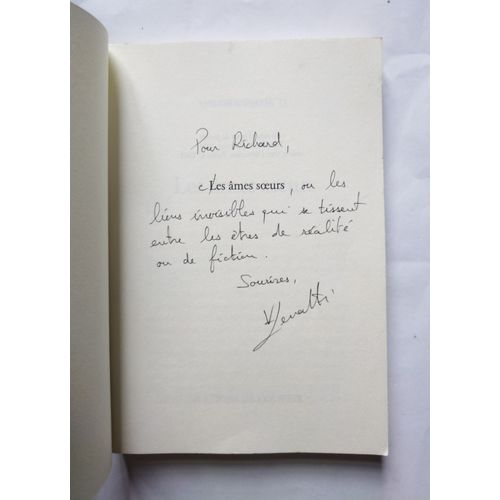 Pour Richard,
Les âmes sœurs, ou les
liens invisibles qui se tissent
entre les êtres de réalité
ou de fiction.
Sourires,